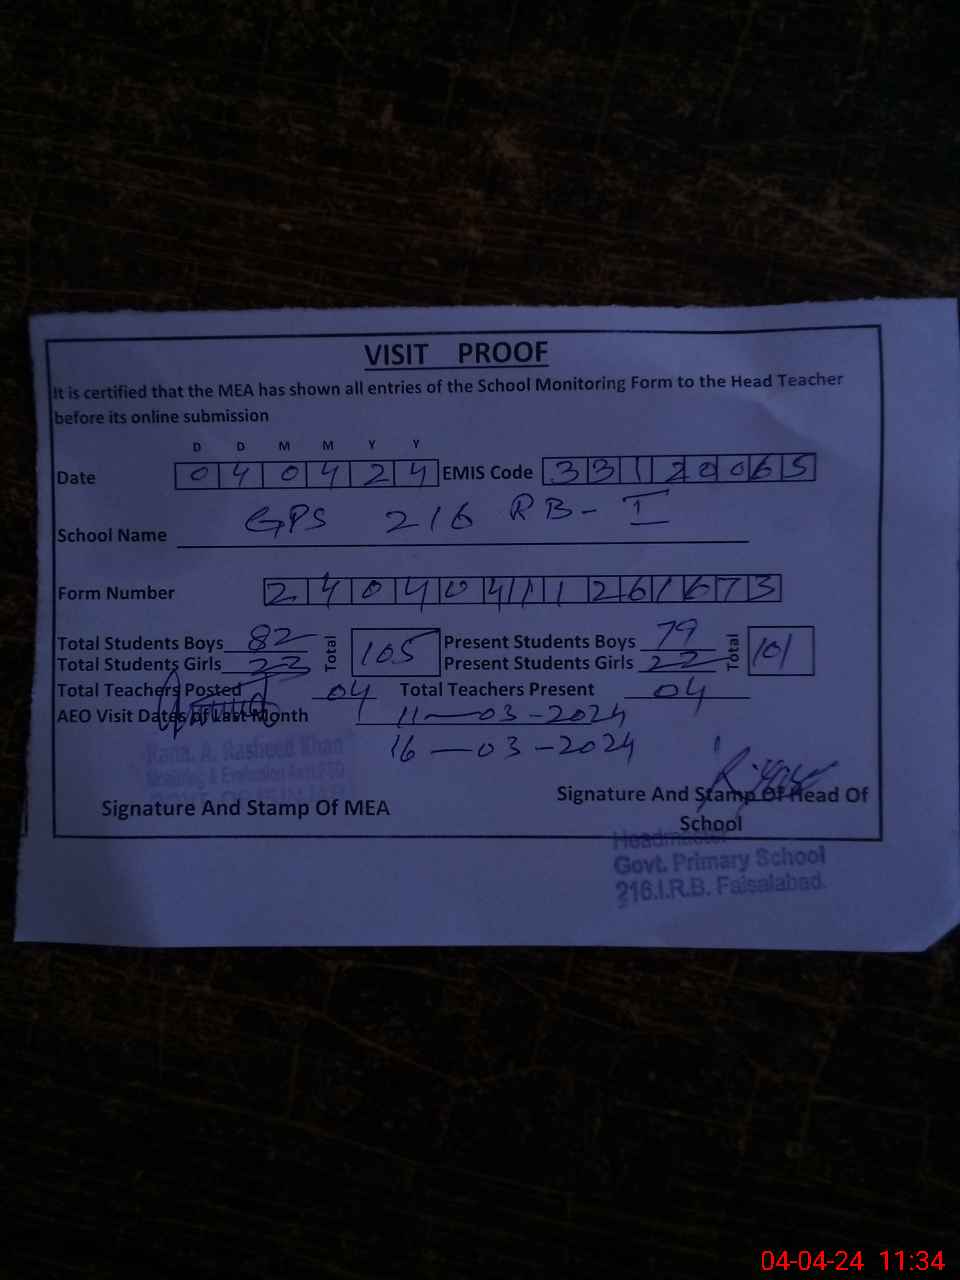 VISIT PROOF
It is certified that the MEA has shown all entries of the School Monitoring Form to the Head Teacher
before its online submission
D D M M Y Y
Date 040424 EMIS Code 33120065
School Name GPS 216 RB-I
Form Number 24040411261673
Total Students Boys 82 Total 105 Present Students Boys 79 Total 101
Total Students Girls 23 Present Students Girls 22
Total Teachers Posted 04 Total Teachers Present 04
AEO Visit Dates of Last Month 11-03-2024
16-03-2024
Rana. A. Rasheed Khan
Monitoring & Evaluation
Signature And Stamp Of MEA
Signature And Stamp Of Head Of
School
Headmaster
Govt. Primary School
216.I.R.B. Faisalabad.
04-04-24 11:34